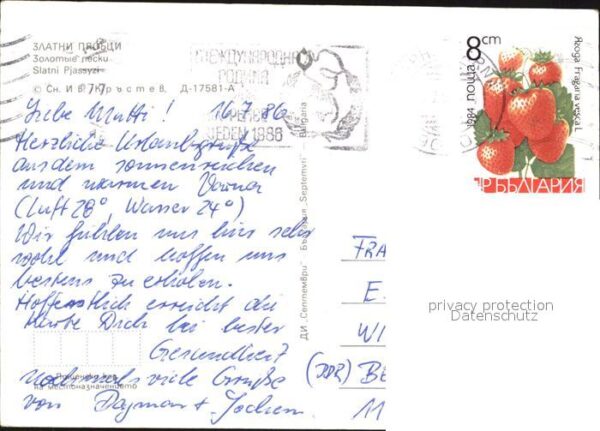 ЗЛАТНИ ПЯСЪЦИ
Золотые пески
Slatni Pjassyzi
© Сн. И в Д-17581-А
МЕЖДУНАРОДНА
РОДИНА
VIEDEN 1986
8 cm
поща
1984
НР БЪЛГАРИЯ
Ягода Fragaria vesca L.
Liebe Mutti! 16.7.86
Herzliche Urlaubsgrüße
aus dem sonnenreichen
und warmen Varna
(Luft 28°, Wasser 24°)
Wir fühlen uns hier sehr
wohl und hoffen uns
bestens zu erholen.
Hoffentlich erreicht die
Karte Dich bei bester
Gesundheit
Nochmals viele Grüße
von Dagmar + Jochen.
ДИ „Септември" България „Septemvri" Bulgaria
Пощенски код
на местоназначението
FRA
E.
WI
(DDR) BE
11
privacy protection
Datenschutz